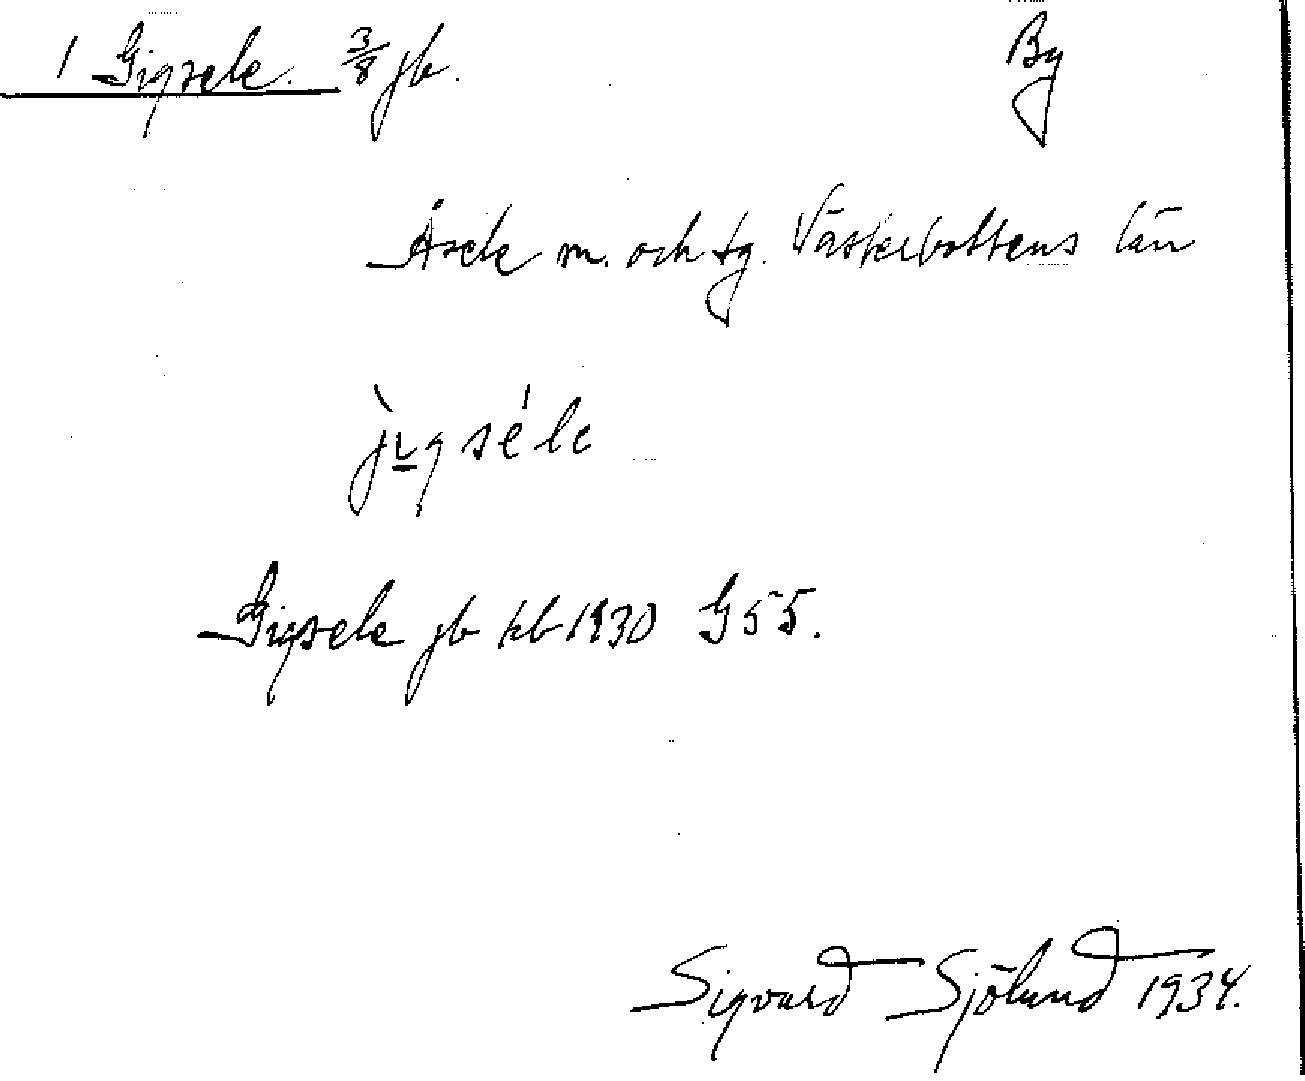 1 Gigsele. 3/8 jb. By
Åsele sn. och tg. Västerbottens län
jɩ̀gséle
Gigsele jb kb 1930 G 55.
Sigvard Sjölund 1934.